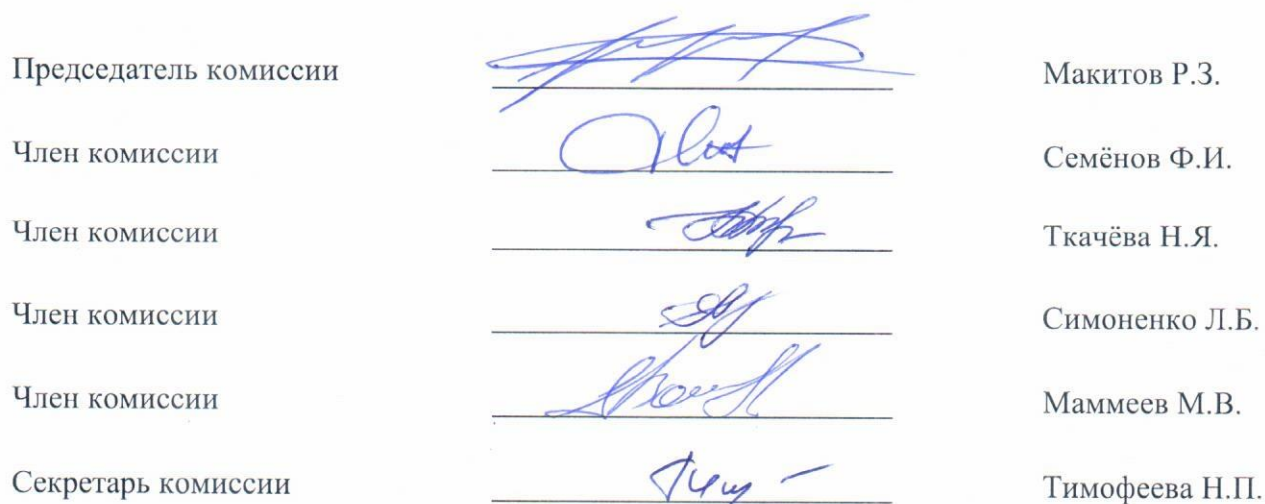 Председатель комиссии Макитов Р.З.
Член комиссии Семёнов Ф.И.
Член комиссии Ткачёва Н.Я.
Член комиссии Симоненко Л.Б.
Член комиссии Маммеев М.В.
Секретарь комиссии Тимофеева Н.П.